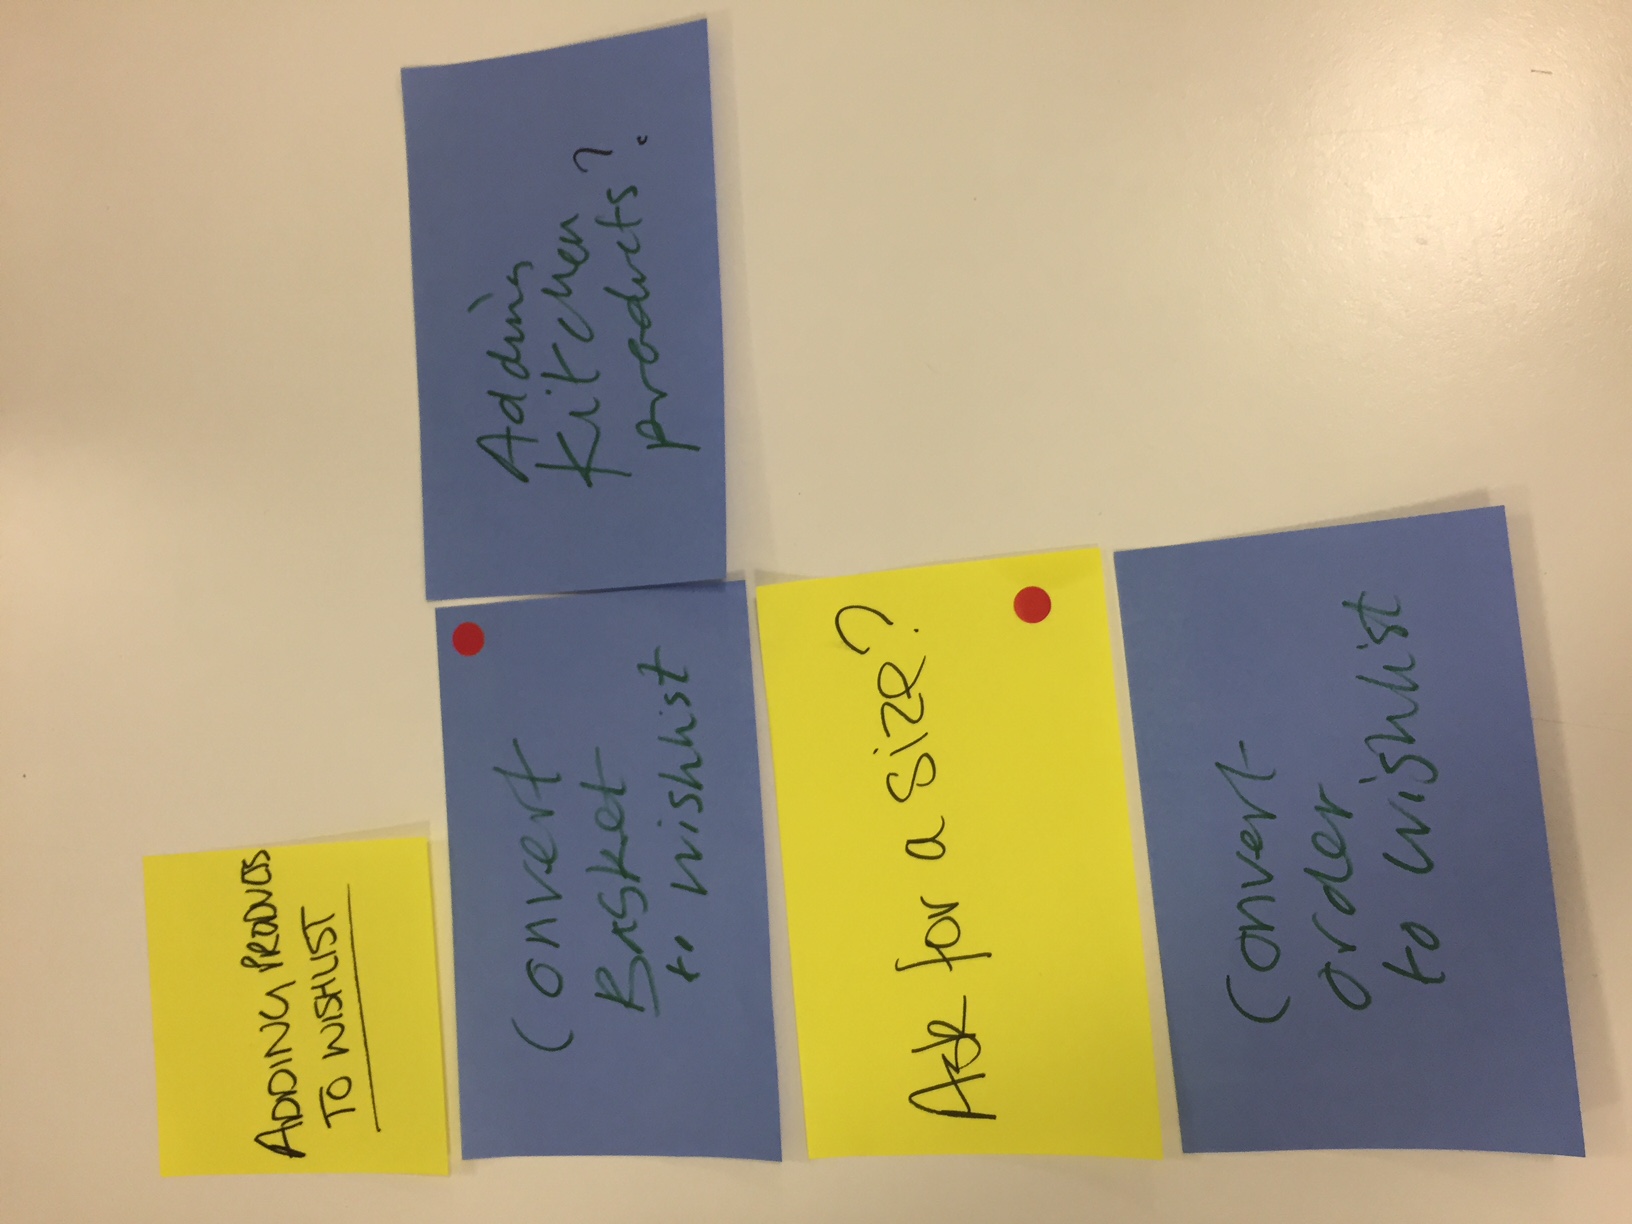 ADDING PRODUCTS
TO WISHLIST
Convert
Basket
to wishlist
Adding
Kitchen
products?
Ask for a size?
Convert
order
to wishlist